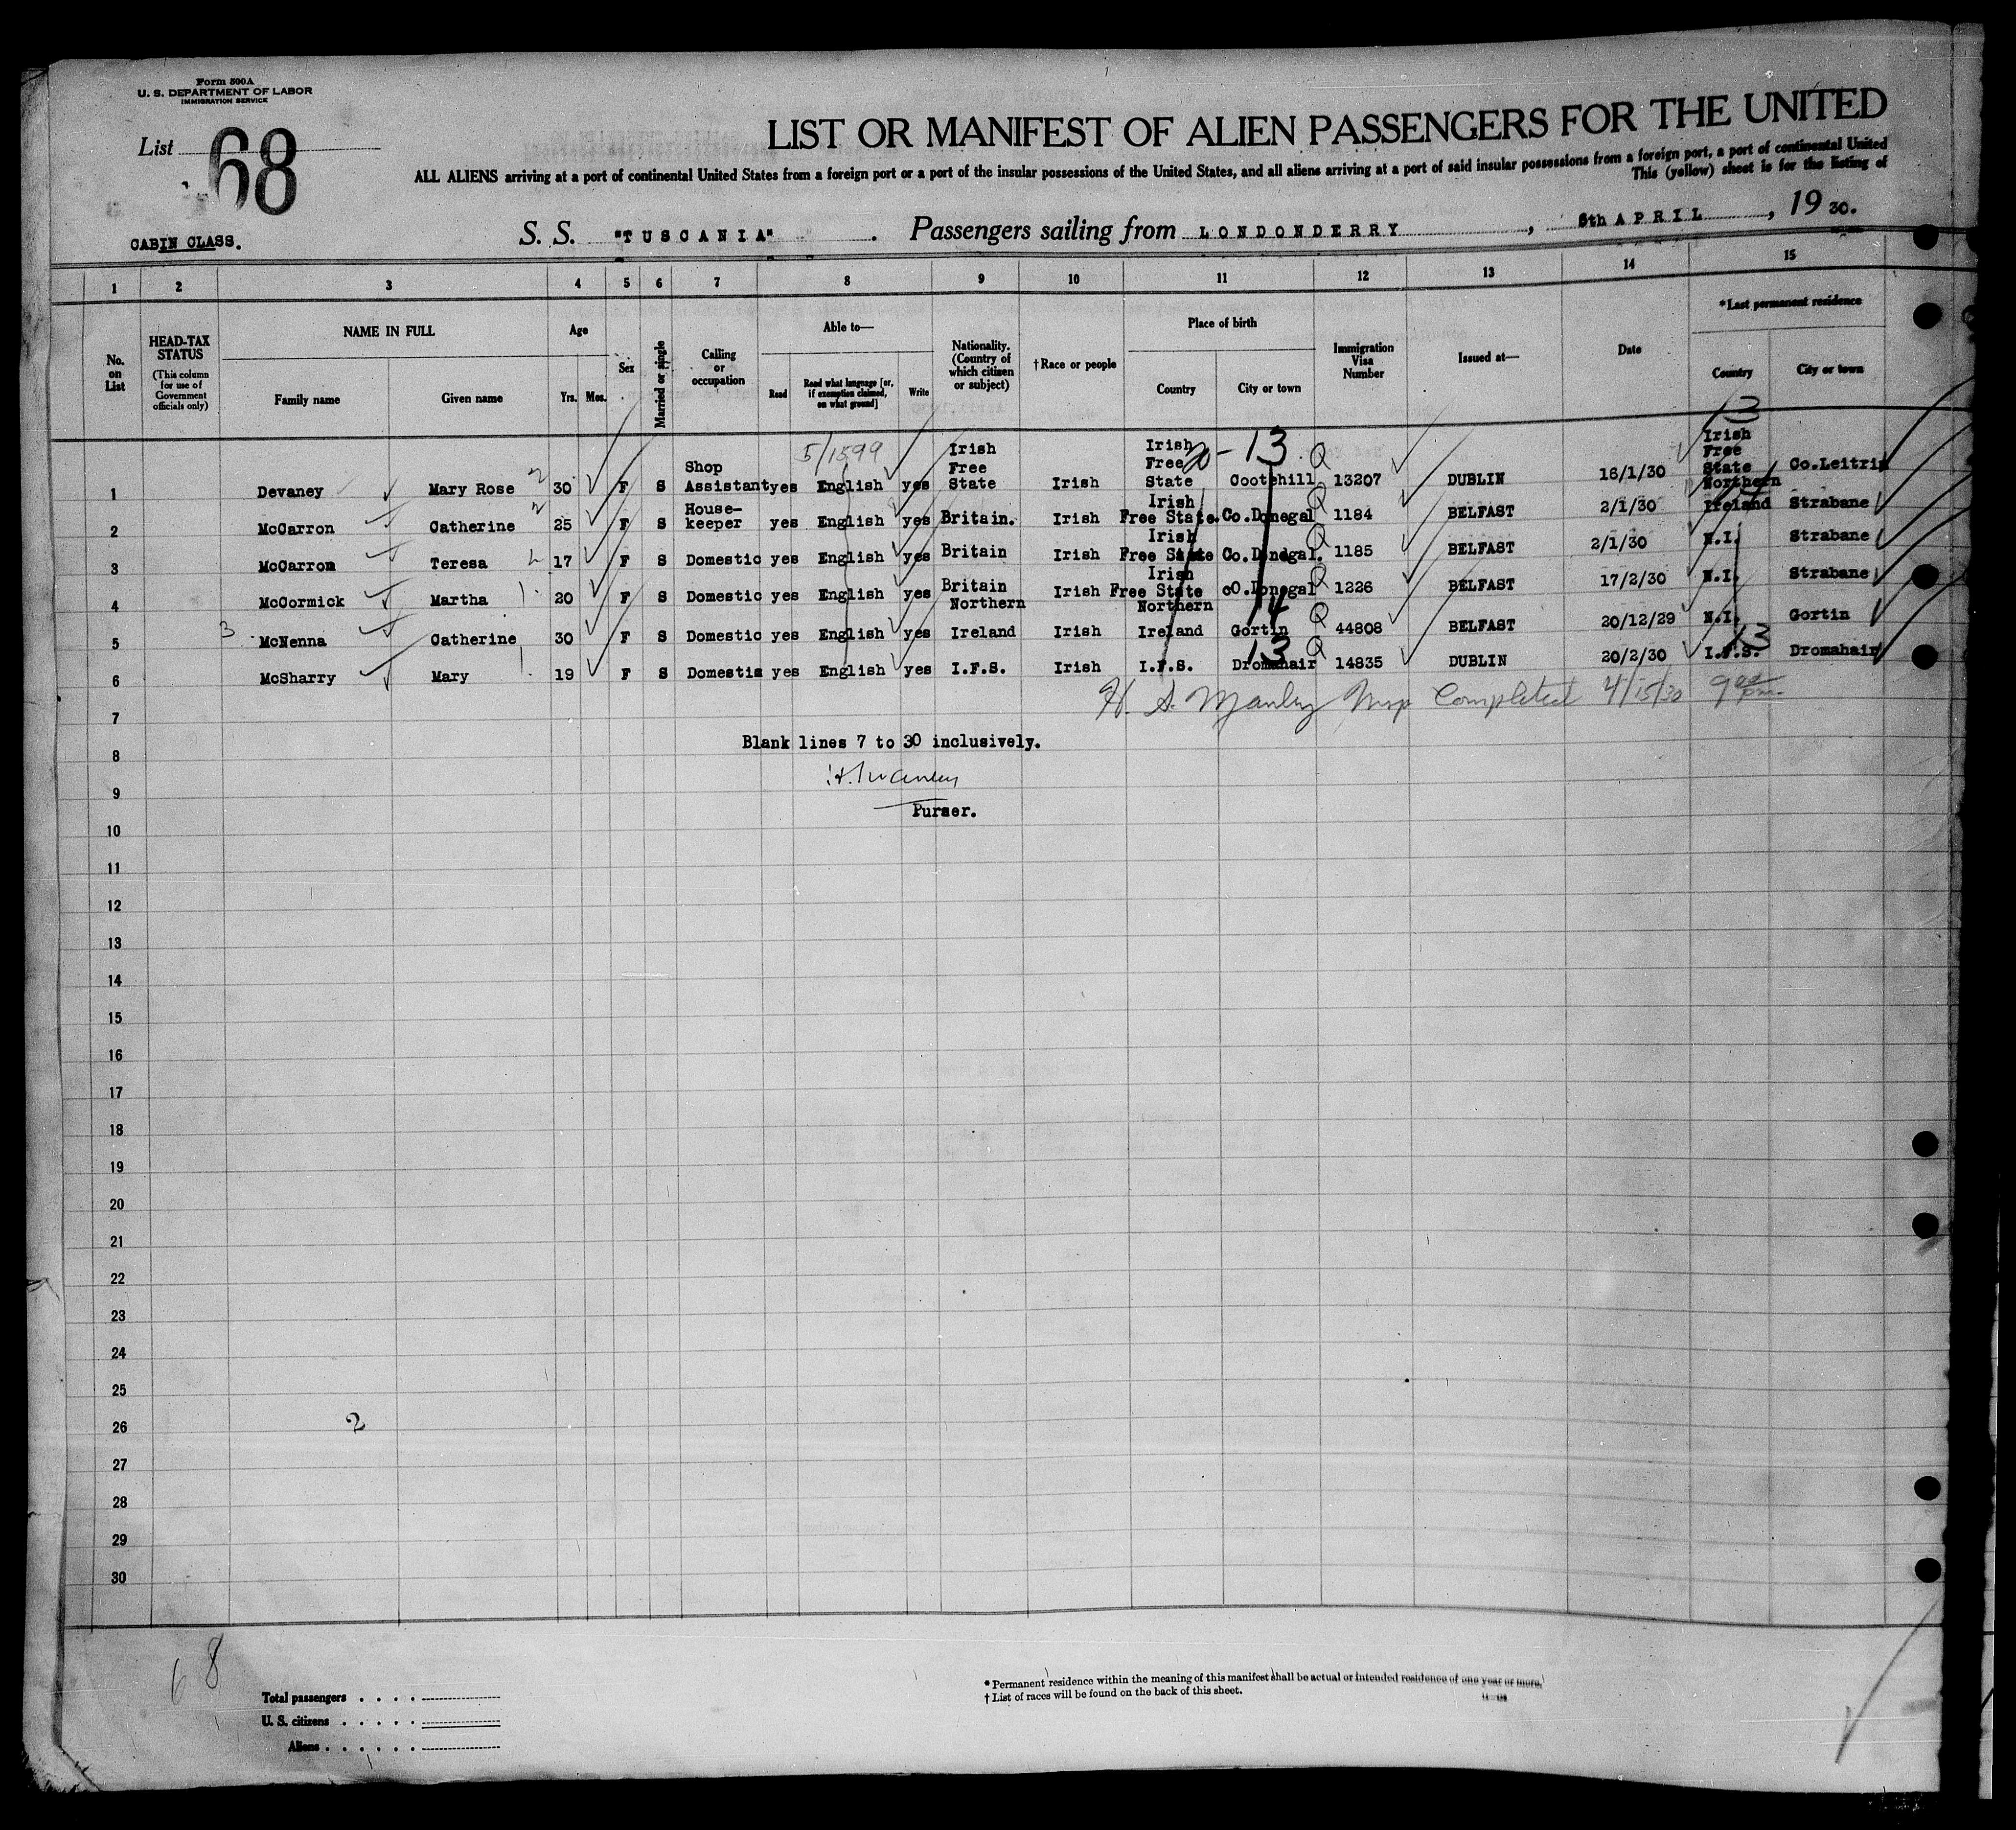 Form 500A
U. S. DEPARTMENT OF LABOR
IMMIGRATION SERVICE
List 68
LIST OR MANIFEST OF ALIEN PASSENGERS FOR THE UNITED
ALL ALIENS arriving at a port of continental United States from a foreign port or a port of the insular possessions of the United States, and all aliens arriving at a port of said insular possessions from a foreign port, a port of continental United
This (yellow) sheet is for the listing of
CABIN CLASS.
S. S. "TUSCANIA" . Passengers sailing from LONDONDERRY , 6th APRIL , 19 30.
1 2 3 4 5 6 7 8 9 10 11 12 13 14 15
No. on List
HEAD-TAX STATUS (This column for use of Government officials only)
NAME IN FULL Family name Given name
Age Yrs. Mos.
Sex
Married or single
Calling or occupation
Able to— Read Read what language [or, if exemption claimed, on what ground] Write
Nationality. (Country of which citizen or subject)
†Race or people
Place of birth Country City or town
Immigration Visa Number
Issued at—
Date
*Last permanent residence Country City or town
5/1599 20-13 3
1 Devaney Mary Rose 30 F S Shop Assistant yes English yes Irish Free State Irish Irish Free State Cootehill Q 13207 DUBLIN 16/1/30 Irish Free State Co.Leitrim
2 McCarron Catherine 25 F S House-keeper yes English yes Britain. Irish Irish Free State. Co.Donegal Q 1184 BELFAST 2/1/30 Northern Ireland Strabane
3 McCarron Teresa 17 F S Domestic yes English yes Britain Irish Irish Free State Co.Donegal. Q 1185 BELFAST 2/1/30 N.I. Strabane
4 McCormick Martha 20 F S Domestic yes English yes Britain Irish Irish Free State cO.Donegal Q 1226 BELFAST 17/2/30 N.I. Strabane
3 5 McNenna Catherine 30 F S Domestic yes English yes Northern Ireland Irish Northern Ireland Gortin 14 Q 44808 BELFAST 20/12/29 N.I. Gortin
6 McSharry Mary 19 F S Domestic yes English yes I.F.S. Irish I.F.S. Dromahair 13 Q 14835 DUBLIN 20/2/30 I.F.S. 13 Dromahair
7 H. S. Manley Insp Completed 4/15/30 9 00 pm.
Blank lines 7 to 30 inclusively.
8
9
Purser.
10
11
12
13
14
15
16
17
18
19
20
21
22
23
24
25
26 2
27
28
29
30
68
Total passengers . . . .
U. S. citizens . . . . .
Aliens . . . . . .
* Permanent residence within the meaning of this manifest shall be actual or intended residence of one year or more.
† List of races will be found on the back of this sheet.